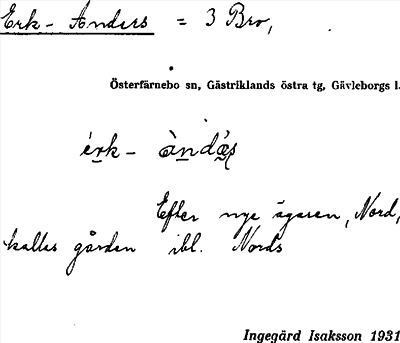 Erk-Anders = 3 Bro,
Österfärnebo sn, Gästriklands östra tg, Gävleborgs l.
érk- àndæ̀ʂ
Efter nye ägaren, Nord,
kallas gården ibl. Nords
Ingegärd Isaksson 1931